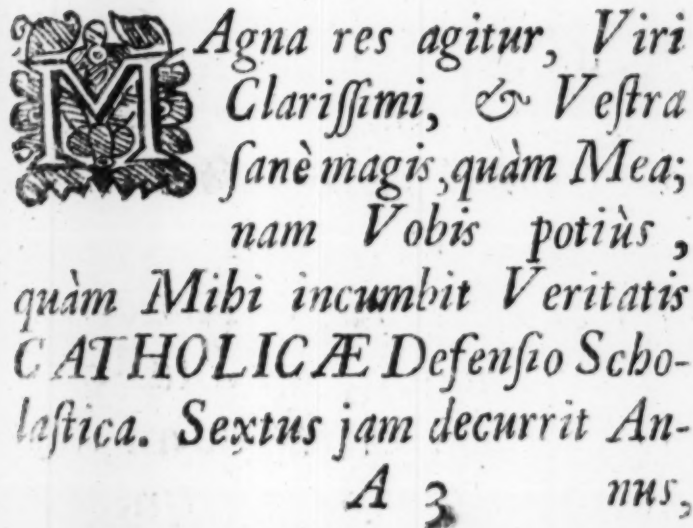 MAgna res agitur, Viri
Clariſſimi, & Veſtra
ſanè magis, quàm Mea;
nam Vobis potiùs,
quàm Mihi incumbit Veritatis
CATHOLICÆ Defenſio Scho-
laſtica. Sextus jam decurrit An-
A 3 nus,